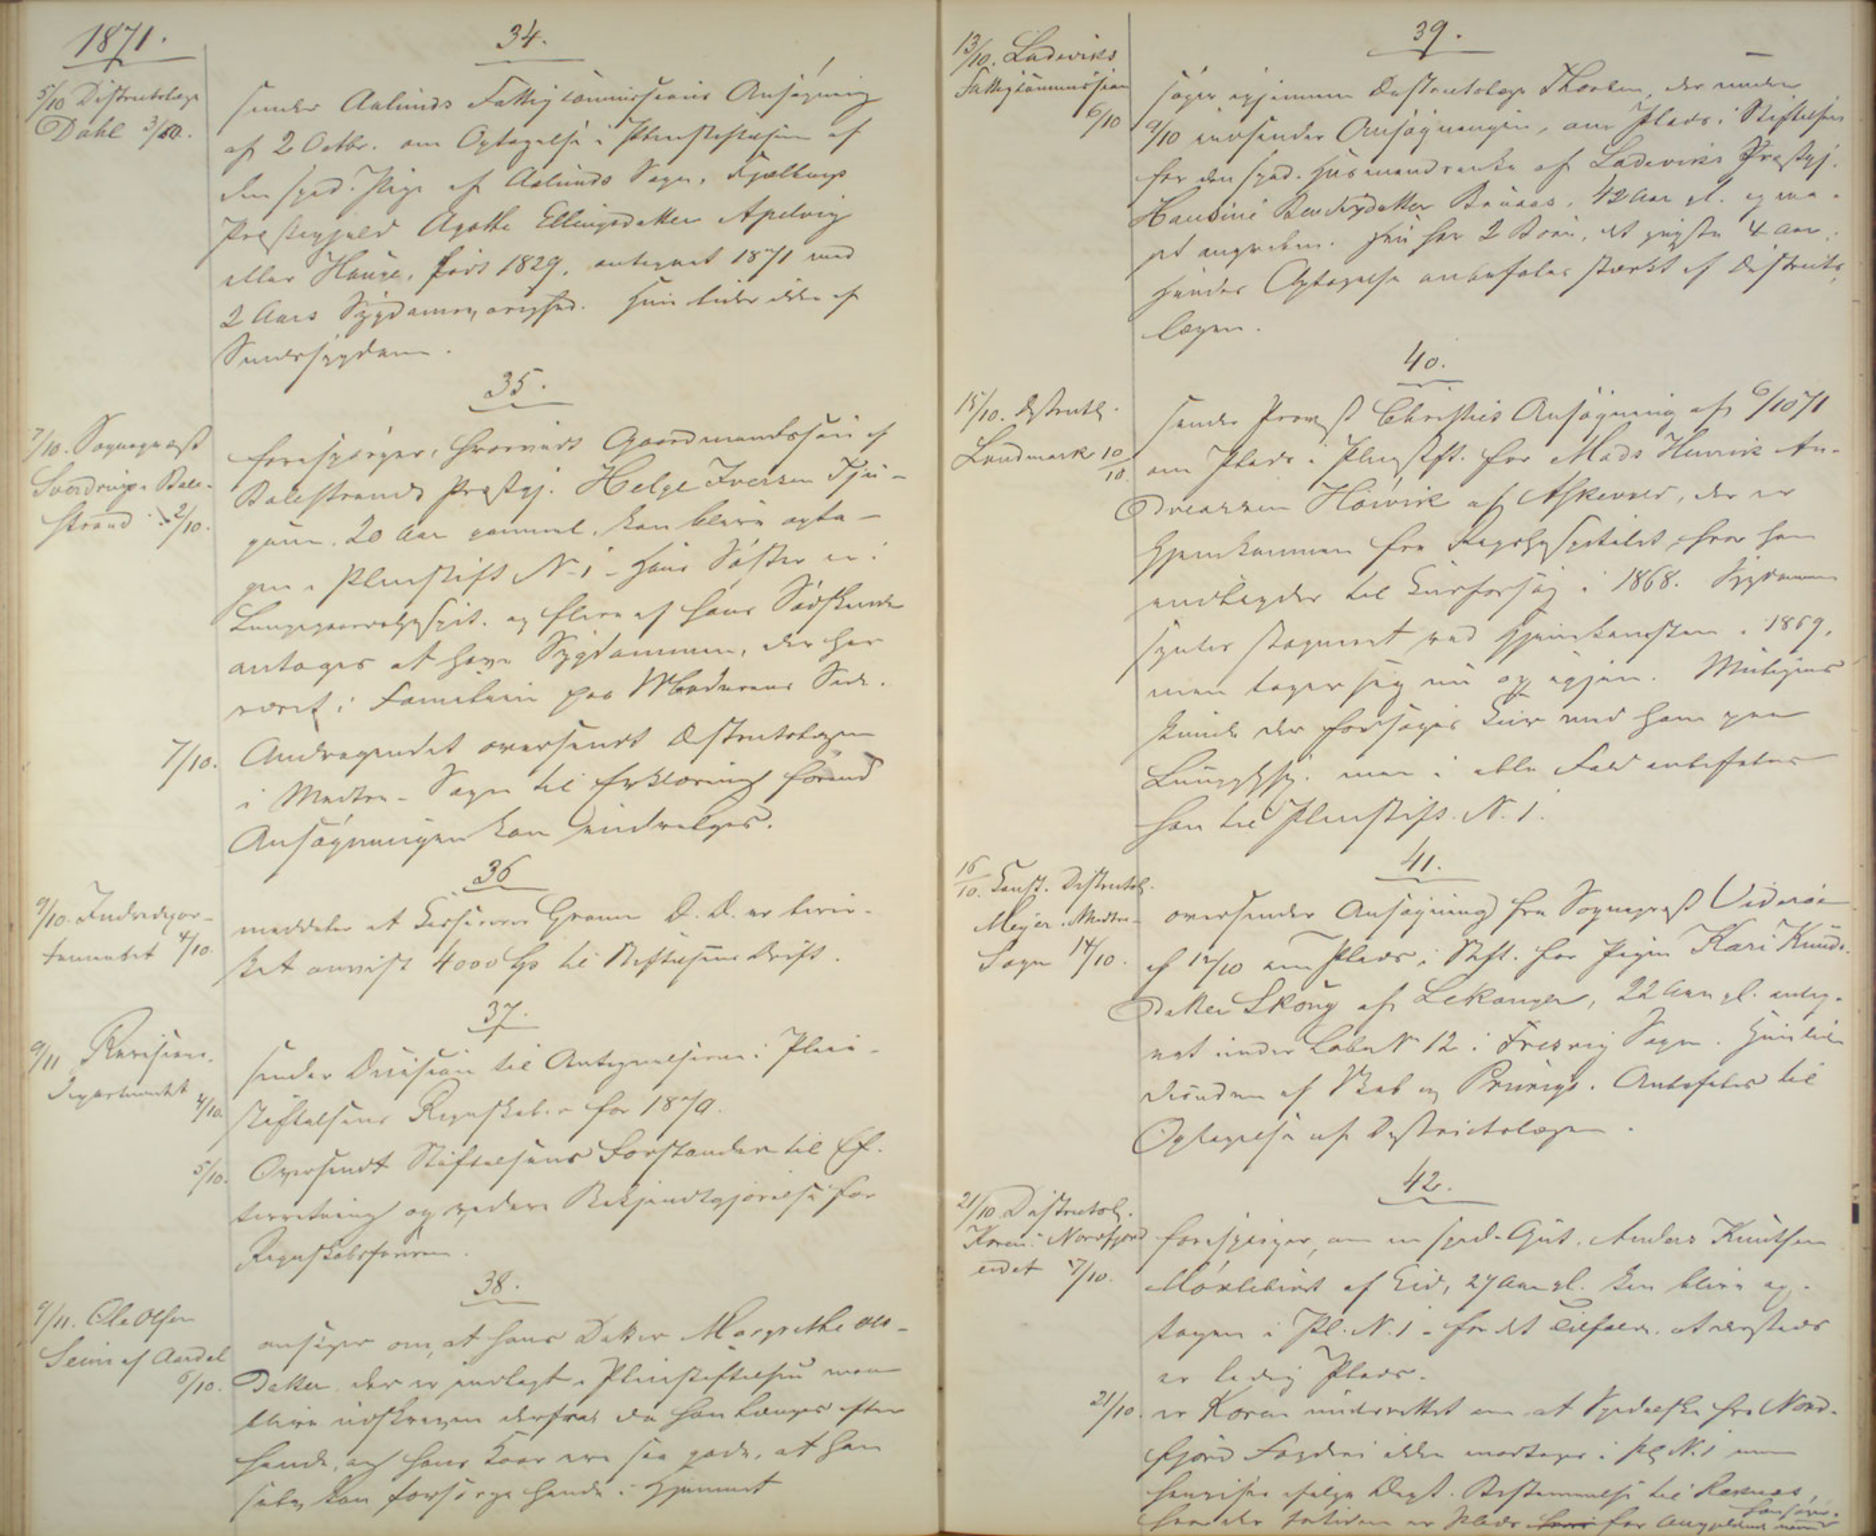 1871.
34.
5/10 Districtslæge
Dahl 3/10.
sender Aalunds Fattigcommissions Ansøgning
af 2 Octbr. om Optagelse i Pleiestiftelsen af
den sped. Pige af Aalunds Sogn,
Præstegjeld Agathe Ellingsdatter Apelvig
eller Hauge, født 1829, antegnet 1871 med
2 Aars Sygdomsvarighed. Hun lider ikke af
Sindssygdom.
35.
7/10. Sogneprest
Sverdrup i Bale-
strand 2/10.
forespørger, hvorvidt Gaardmandssøn af
Balestrands Præstgj. Helge Iversen Tju-
gum, 20 Aar gammel, kan blive opta-
gen i Pleiestift. N. 1 - Hans Søster er i
Lungegaardshospit. og flere af hans Sødskende
antages at have Sygdommen, der har
været i Familien paa Moderens Side.
7/10. Andragendet oversendt Districtslægen
i Midtre-Sogn til Erklæring førend
Ansøgningen kan indvilges.
36
9/10. Indredepar-
tementet 4/10.
meddeler at Kasserer Gran D. D. er bevir-
ket anvist 4000 Sp til Stiftelsens Drift.
37.
9/11 Revisions-
departementet 4/10.
sender Decision til Antegnelserne i Pleie-
stiftelsens Regnskab for 1870.
5/10. Oversendt Stiftelsens Forstander til Ef-
terretning og videre Bekjendtgjørelse for
Regnskabsføreren.
38.
9/11. Ole Olsen
Seim af Aardal
6/10.
ansøger om, at hans Datter Margrethe Ols-
datter, der er indlagt i Pleiestiftelsen maa
blive udskreven derfra, da han længes efter
hende, og hans Kaar ere saa gode, at han
selv kan forsørge hende i Hjemmet
39.
13/10. Ladeviks
Fattigcommission
6/10
søger igjennem Districtslæge Thoresen, der under
9/10 indsender Ansøgningen, om Plads i Stiftelsen
for den sped. Husmandsenke af Ladeviks Præstgj.
Bendixdatter 42 Aar gl. og me-
get angreben. Hun har 2 Børn, det yngste 4 Aar.
Hendes Optagelse anbefales stærkt af Districts-
lægen.
40.
15/10. Districtsl.
Landmark 10/10
sender Provst Christies Ansøgning af 6/10 71
om Plads i Pleiestift. for Mads Henrik An-
dreassen Høivik af Askevold, der er
hjemkommen fra Rigshospitalet, hvor han
indlagdes til Kurforsøg i 1868. Sygdommen
syntes stagneret ved Hjemkomsten i 1869,
men tager sig nu op igjen. Muligens
kunde der forsøges Kur med ham paa
Lungghsp. men i alle Fald anbefales
han til Pleiestift. N. 1.
41.
16/10. Const. Districtsl.
Meyer i Midtre-
Sogn 14/10.
oversender Ansøgning fra Sogneprest Viderøe
af 12/10 om Plads i Stift. for Pigen Kari Knuds-
datter Skoug af Lekanger, 22 Aar gl. anteg-
net under Løbe N 12 i Fresvig Sogn. Hun lider
desuden af Skab og Prurigo. Anbefales til
Optagelse af Districtslægen.
42.
21/10. Districtsl.
Koren i Nordfjord-
eidet 7/10.
forespørger, om en sped. Gut, Anders Knutsen
af Eid, 27 Aar gl. kan blive op-
tagen i Pl. N. 1 - for det Tilfælde, at dersteds
er ledig Plads.
21/10. er Koren underrettet om at Spedalske fra Nord-
fjord Fogderi ikke modtages i Pl. N. 1 men
henvises ifølge Dept. Bestemmelse til Reknæs,
hvor der er Plads for